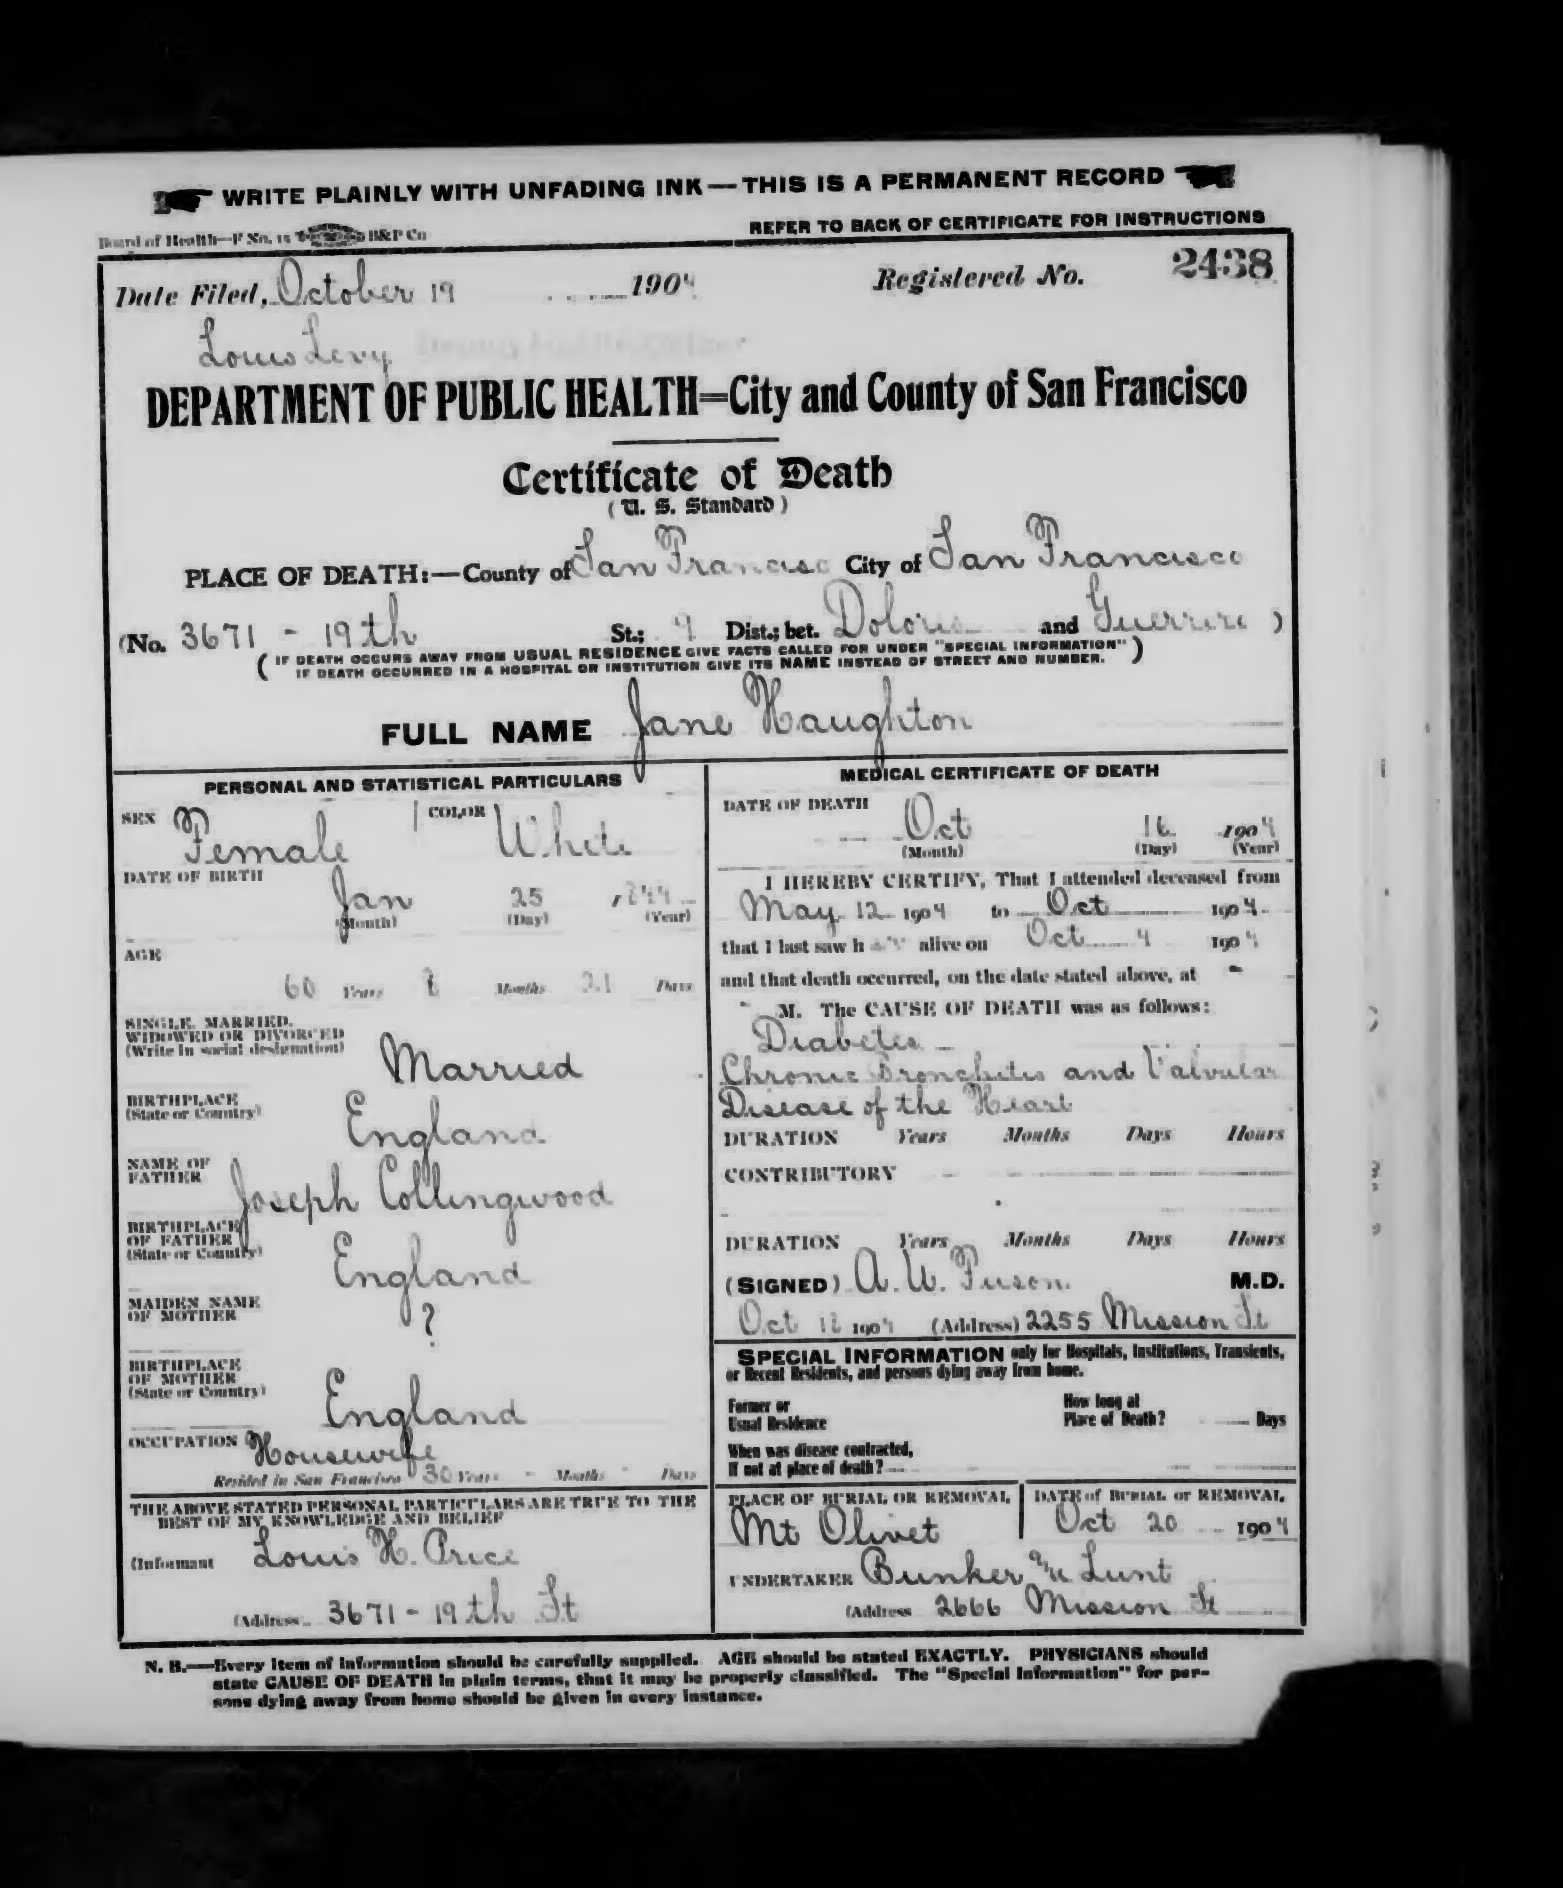 WRITE PLAINLY WITH UNFADING INK—THIS IS A PERMANENT RECORD
Board of Health—F No. 15 B&P Co
REFER TO BACK OF CERTIFICATE FOR INSTRUCTIONS
Date Filed, October 19 1904 Registered No. 2438
Louis Levy
DEPARTMENT OF PUBLIC HEALTH=City and County of San Francisco
Certificate of Death
(U. S. Standard)
PLACE OF DEATH:—County of San Francisco City of San Francisco
(No. 3671 - 19th St.; 9 Dist.; bet. Dolores and Guerrero )
( IF DEATH OCCURS AWAY FROM USUAL RESIDENCE GIVE FACTS CALLED FOR UNDER "SPECIAL INFORMATION" )
IF DEATH OCCURRED IN A HOSPITAL OR INSTITUTION GIVE ITS NAME INSTEAD OF STREET AND NUMBER.
FULL NAME Jane Haughton
PERSONAL AND STATISTICAL PARTICULARS
SEX Female COLOR White
DATE OF BIRTH
Jan 25 1844
(Month) (Day) (Year)
AGE
60 Years 8 Months 21 Days
SINGLE, MARRIED,
WIDOWED OR DIVORCED
(Write in social designation)
Married
BIRTHPLACE
(State or Country)
England
NAME OF
FATHER
Joseph Collingwood
BIRTHPLACE
OF FATHER
(State or Country)
England
MAIDEN NAME
OF MOTHER
?
BIRTHPLACE
OF MOTHER
(State or Country)
England
OCCUPATION Housewife
Resided in San Francisco 30 Years - Months - Days
THE ABOVE STATED PERSONAL PARTICULARS ARE TRUE TO THE
BEST OF MY KNOWLEDGE AND BELIEF
(Informant Louis H. Price
(Address 3671 - 19th St
MEDICAL CERTIFICATE OF DEATH
DATE OF DEATH
Oct 16 1904
(Month) (Day) (Year)
I HEREBY CERTIFY, That I attended deceased from
May 12 1904 to Oct 1904
that I last saw h er alive on Oct 4 1904
and that death occurred, on the date stated above, at -
- M. The CAUSE OF DEATH was as follows:
Diabetes -
Chronic Bronchitis and Valvular
Disease of the Heart
DURATION Years Months Days Hours
CONTRIBUTORY
DURATION Years Months Days Hours
(SIGNED) A. W. M.D.
Oct 1904 (Address) 2255 Mission St
SPECIAL INFORMATION only for Hospitals, Institutions, Transients,
or Recent Residents, and persons dying away from home.
Former or
Usual Residence
How long at
Place of Death? Days
When was disease contracted,
If not at place of death?
PLACE OF BURIAL OR REMOVAL
Mt Olivet
DATE of BURIAL or REMOVAL
Oct 20 1904
UNDERTAKER Bunker & Lunt
(Address 2666 Mission St
N. B.—Every item of information should be carefully supplied. AGE should be stated EXACTLY. PHYSICIANS should
state CAUSE OF DEATH in plain terms, that it may be properly classified. The "Special Information" for per-
sons dying away from home should be given in every instance.